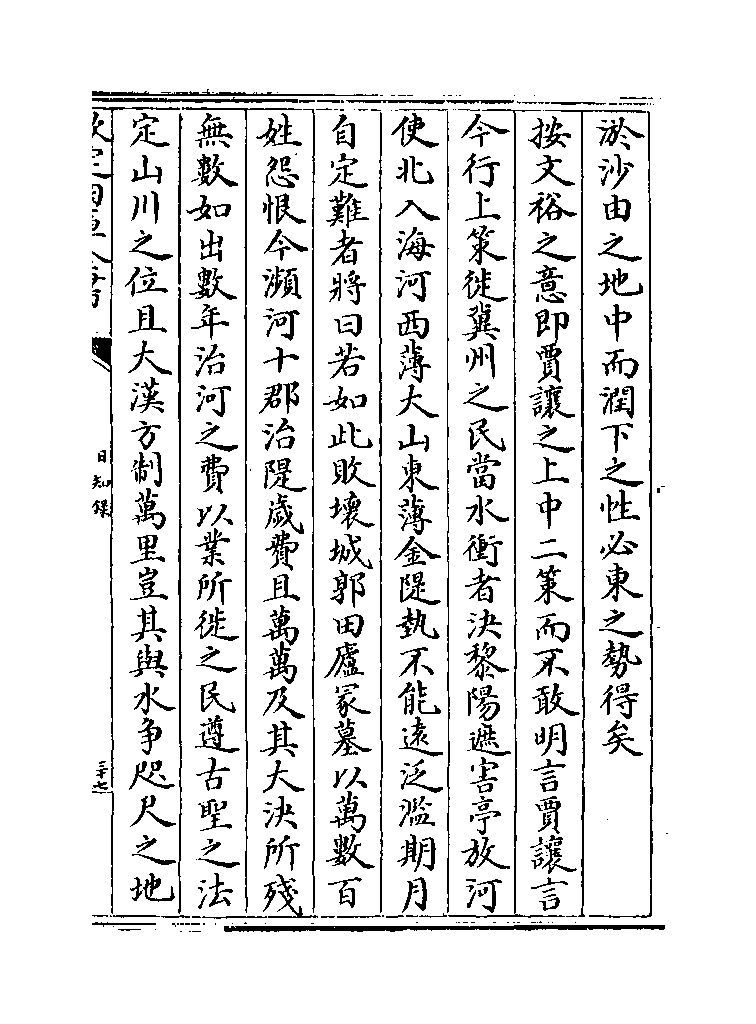 淤沙由之地中而潤下之性必東之勢得矣
按文裕之意即賈讓之上中二策而不敢明言賈讓言
今行上策徙冀州之民當水衝者決黎陽遮害亭放河
使北入海河西薄大山東薄金隄埶不能遠泛濫期月
自定難者將曰若如此敗壞城郭田廬冢墓以萬數百
姓怨恨今瀕河十郡治隄歲費且萬萬及其大決所殘
無數如出數年治河之費以業所徙之民遵古聖之法
定山川之位且大漢方制萬里豈其與水争咫尺之地
日知錄
三十七